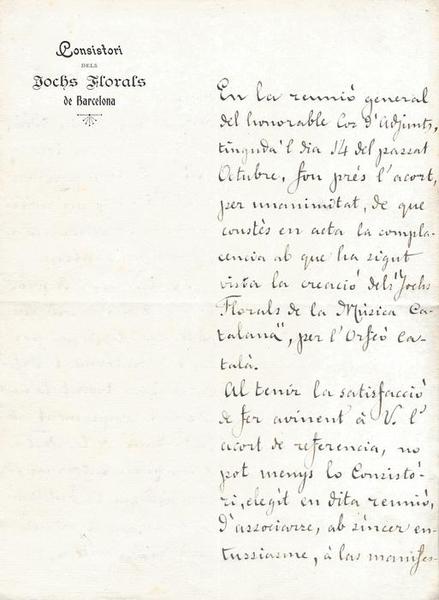 Consistori
DELS
Jochs Florals
de Barcelona
En la reunió general
del honorable Cos d'Adjunts,
tinguda'l dia 14 del passat
Octubre, fou prés l'acort,
per unanimitat, de que
constés en acta la compla-
cencia ab que ha sigut
vista la creació dels "Jochs
Florals de la Música Ca-
talana", per l'Orfeó Ca-
talà.
Al tenir la satisfacció
de fer avinent à V. l'
acort de referencia, no
pot menys lo Consistó-
ri, elegit en dita reunió,
d'associarse, ab sincer en-
tussiasme, á las manifes-